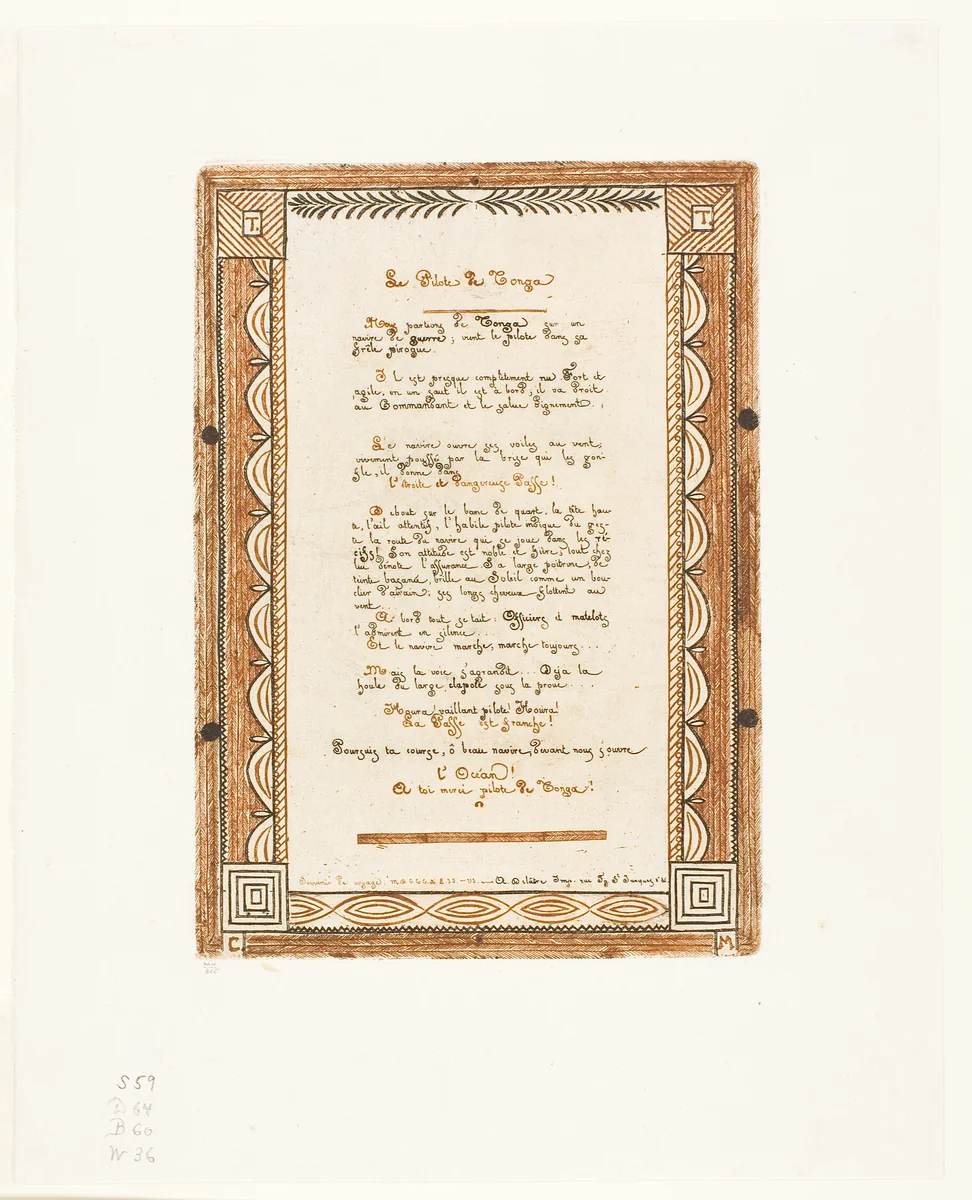 T. T.
Le Pilote de Tonga
Nous partions de Tonga sur un
navire de guerre ; vient le pilote dans sa
frêle pirogue.
Il est presque complètement nu. Fort et
agile, en un saut il est à bord, il va droit
au Commandant et le salue dignement.
Le navire ouvre ses voiles au vent,
vivement poussé par la brise qui les gon-
fle, il donne dans
l'étroite et dangereuse Passe !
Debout sur le banc de quart, la tête hau-
te, l'œil attentif, l'habile pilote indique du ges-
te la route du navire qui se joue dans les ré-
cifs ! Son attitude est noble et fière, tout chez
lui dénote l'assurance. Sa large poitrine, de
teinte basanée, brille au Soleil comme un bou-
clier d'airain ; ses longs cheveux flottent au
vent...
A bord tout se tait : Officiers et matelots
l'admirent en silence...
Et le navire marche, marche toujours...
Mais la voie s'agrandit... Déja la
houle du large clapote sous la proue....
Houra, vaillant pilote ! Houra !
La Passe est franche !
Poursuis ta course, ô beau navire, devant nous s'ouvre
l'Océan !
A toi merci pilote de Tonga !
de voyage A. Delâtre Imp. rue Fg St Jacques
C. M.
S 59
D 64
B 60
W 36